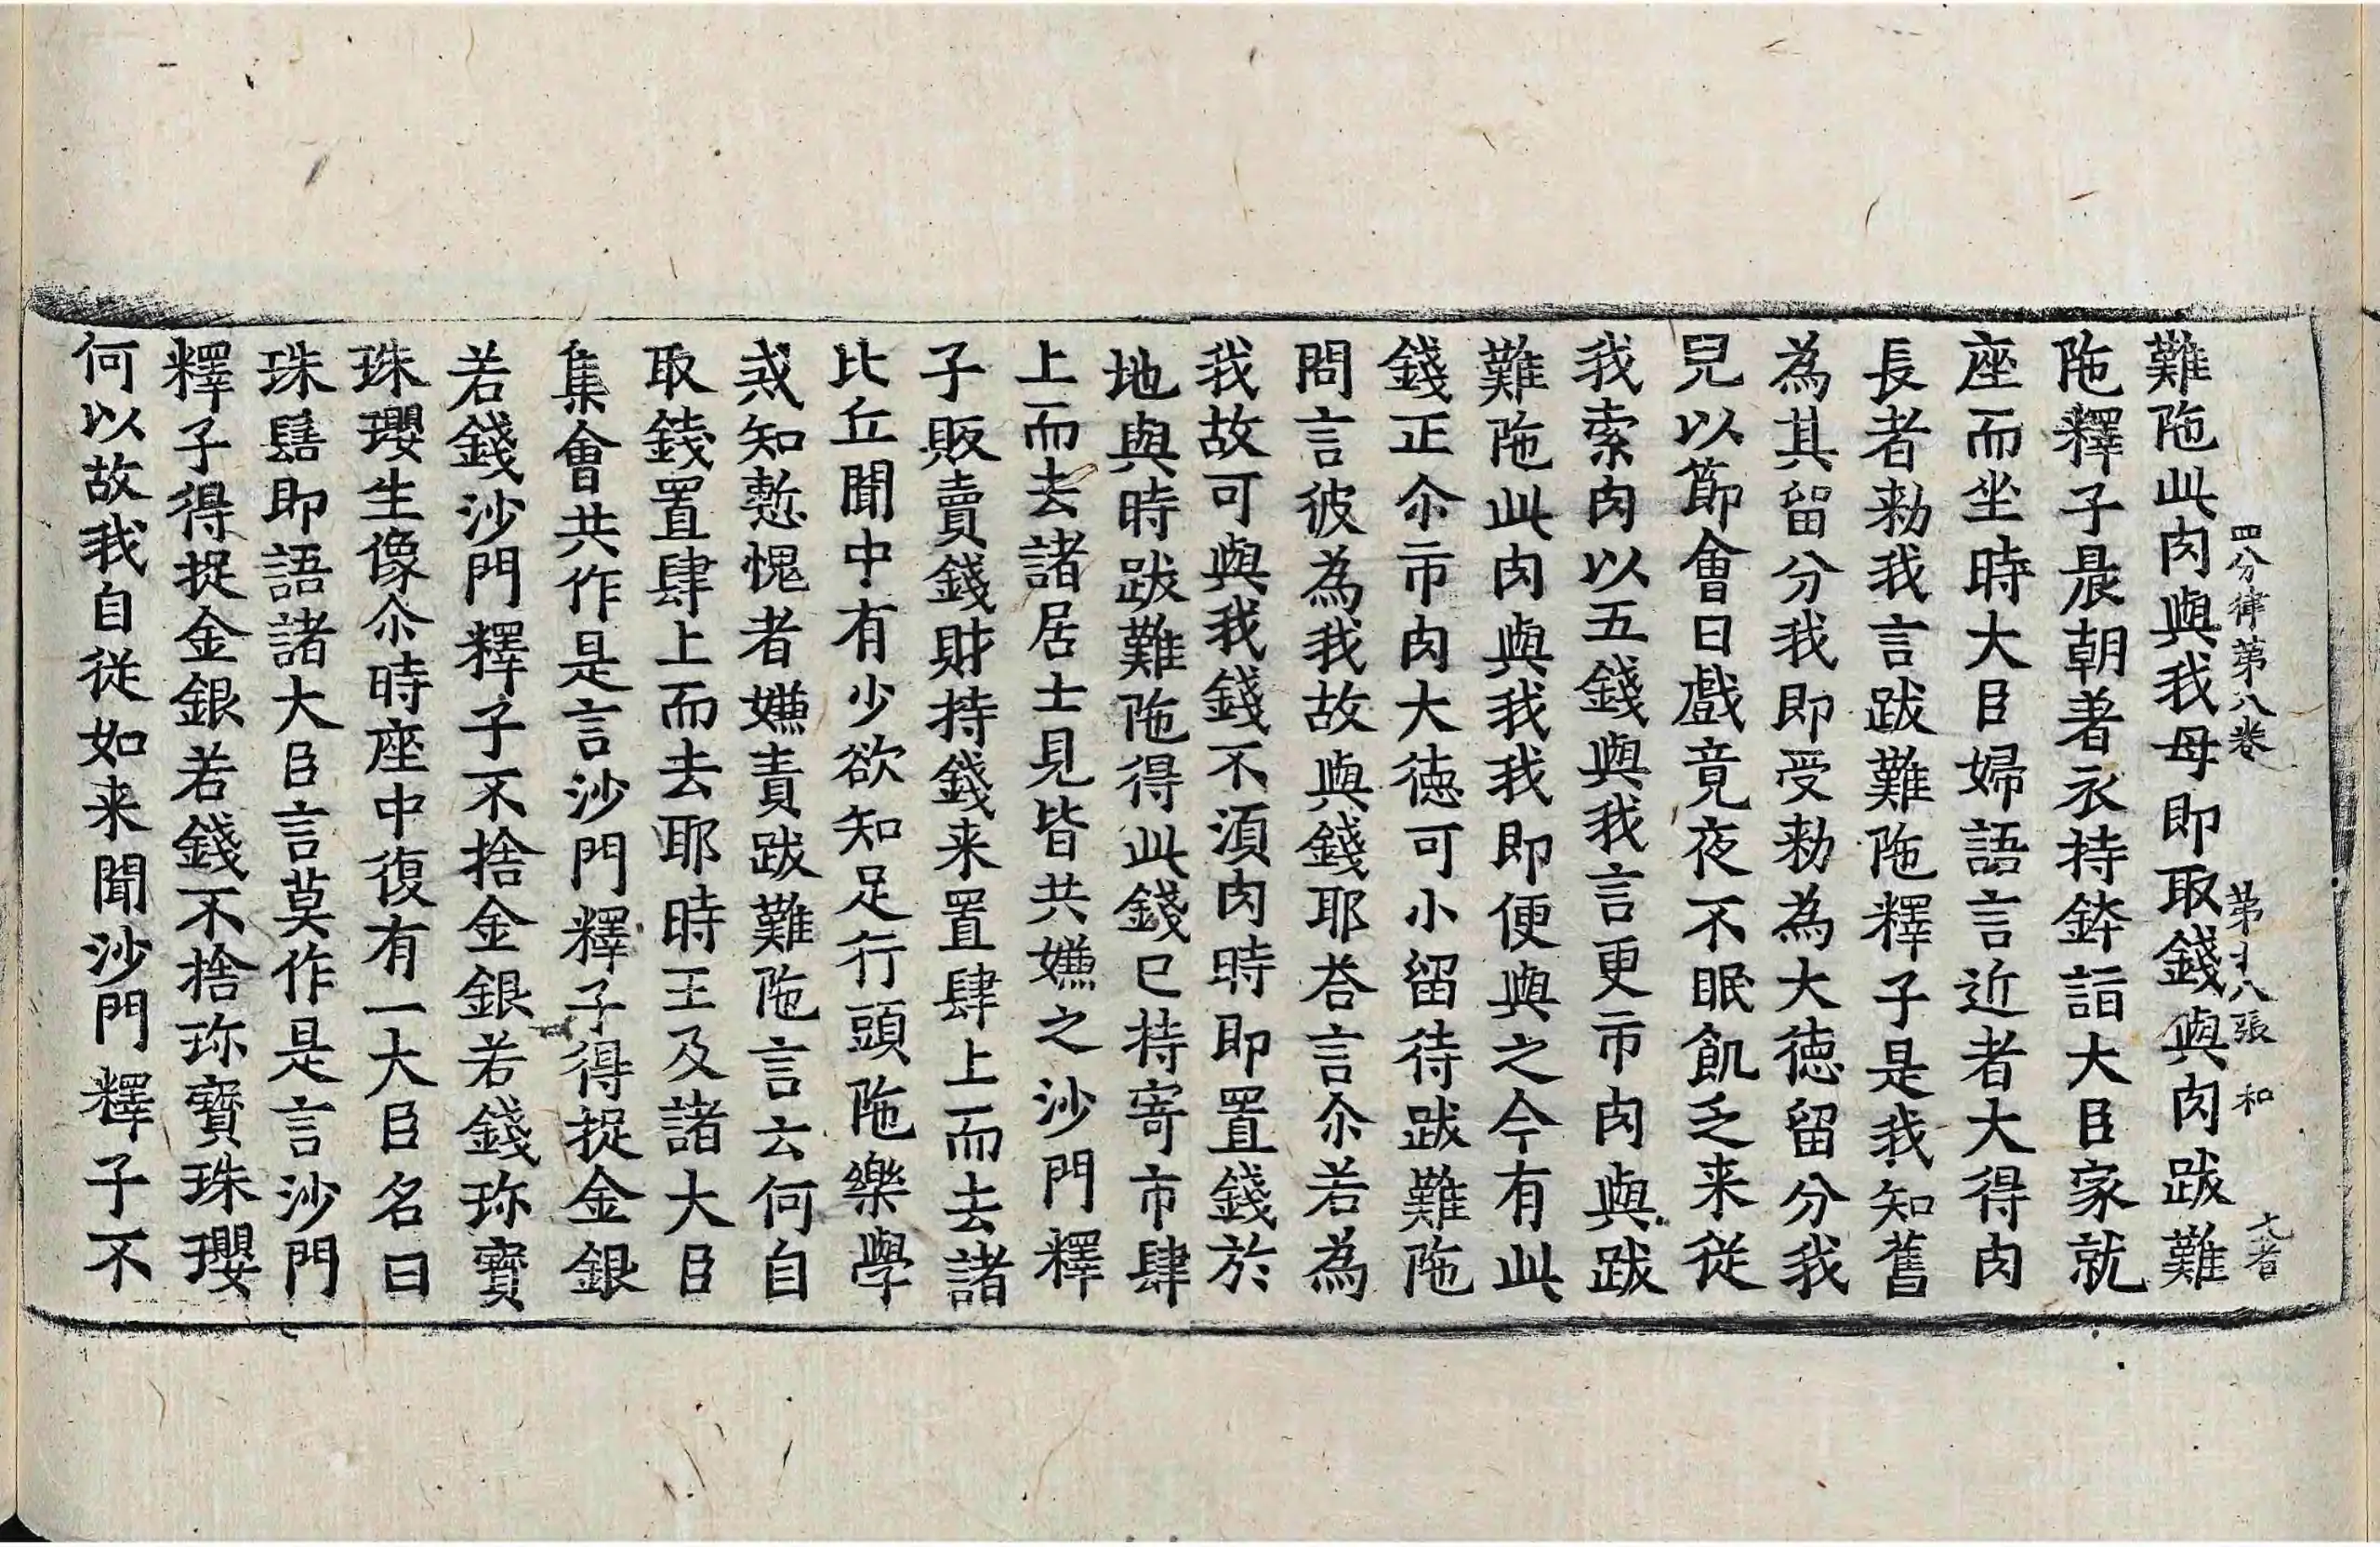 四分律第八卷 第十八張 和
難陁此肉與我母即取錢與肉跋難
陁釋子晨朝著衣持鉢詣大臣家就
座而坐時大臣婦語言近者大得肉
長者勑我言跋難陁釋子是我知舊
為其留分我即受勑為大徳留分我
兒以節會日戲竟夜不眠飢乏来從
我索肉以五錢與我言更市肉與跋
難陁此肉與我我即便與之今有此
錢正尒市肉大徳可小留待跋難陁
問言彼為我故與錢耶荅言尒若為
我故可與我錢不湏肉時即置錢於
地與時跋難陁得此錢已持寄市肆
上而去諸居士見皆共嫌之沙門釋
子販賣錢財持錢来置肆上而去諸
比丘聞中有少欲知足行頭陁樂學
戒知慙愧者嫌責跋難陁言云何自
取錢置肆上而去耶時王及諸大臣
集會共作是言沙門釋子得捉金銀
若錢沙門釋子不捨金銀若錢珎寶
珠瓔生像尒時座中復有一大臣名曰
珠髻即語諸大臣言莫作是言沙門
釋子得捉金銀若錢不捨珎寶珠瓔
何以故我自從如来聞沙門釋子不